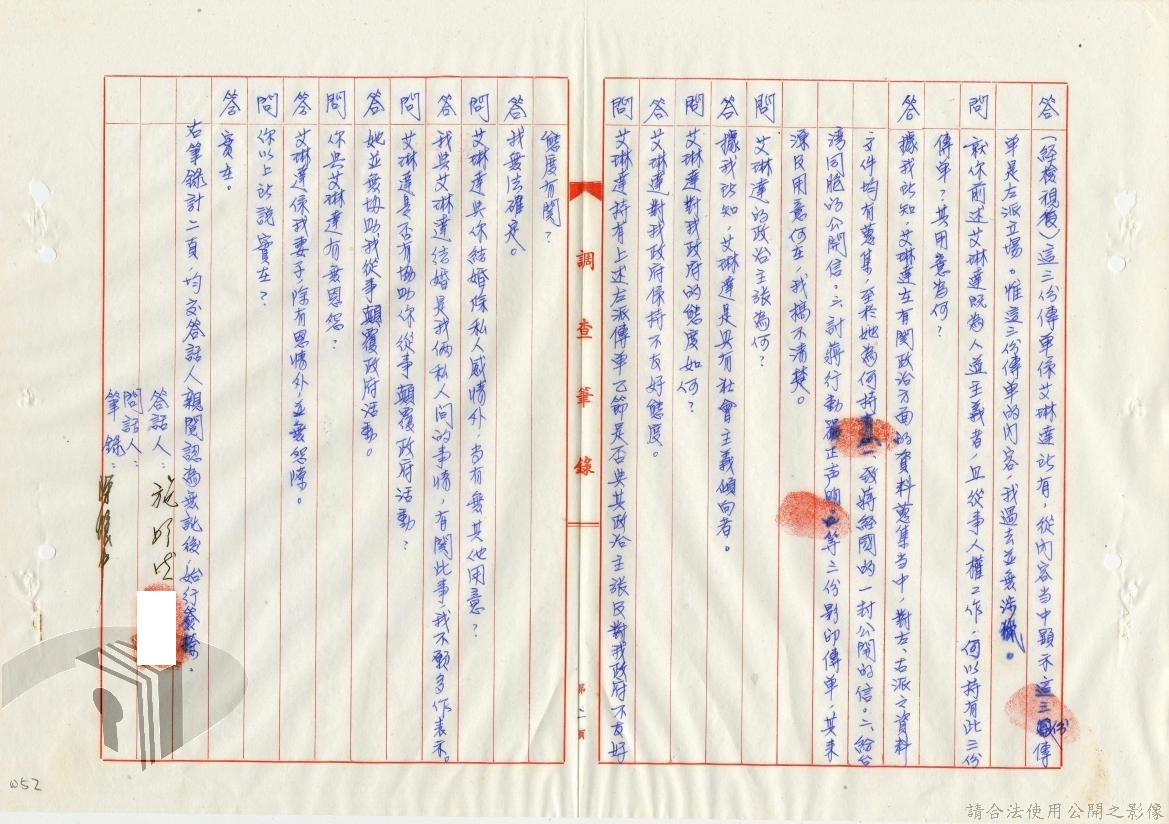 答（經檢視後）這三份傳單係艾琳達所有，從內容當中顯示這三份傳
單是左派立場。惟這三份傳單的內容，我過去並無涉獵。
問 就你前述艾琳達既為人道主義者，且從事人權工作，何以持有此三份
傳单？其用意為何？
答 據我所知，艾琳達在有関政治方面的資料蒐集當中，對左、右派之資料
文件均有蒐集，至於她為何持有一、致蔣經國的一封公開的信。二、給台
湾同胞的公開信。三、討蔣行動嚴正声明。等三份影印傳单，其来
源及用意何在，我搞不清楚。
問 艾琳達的政治主張為何？
答 據我所知，艾琳達是具有社會主義傾向者。
問 艾琳達對我政府的態度如何？
答 艾琳達對我政府保持不友好態度。
問 艾琳達持有上述左派傳单乙節是否與其政治主張反對我政府不友好
調查筆錄
第二頁
態度有関？
答 我無法確定。
問 艾琳達與你結婚除私人感情外，尚有無其他用意？
答 我與艾琳達結婚是我俩私人间的事情，有関此事，我不願多作表示。
問 艾琳達是否有協助你從事顛覆政府活動？
答 她並無協助我從事顛覆政府活動。
問 你與艾琳達有無恩怨？
答 艾琳達係我妻子，除有恩情外，並無怨隙。
問 你以上所説實在？
答 實在。
右筆錄計二頁，均交答話人親閱認為無訛後，始行簽捺。
答話人：施明德
問話人：
筆錄：
052
請合法使用公開之影像